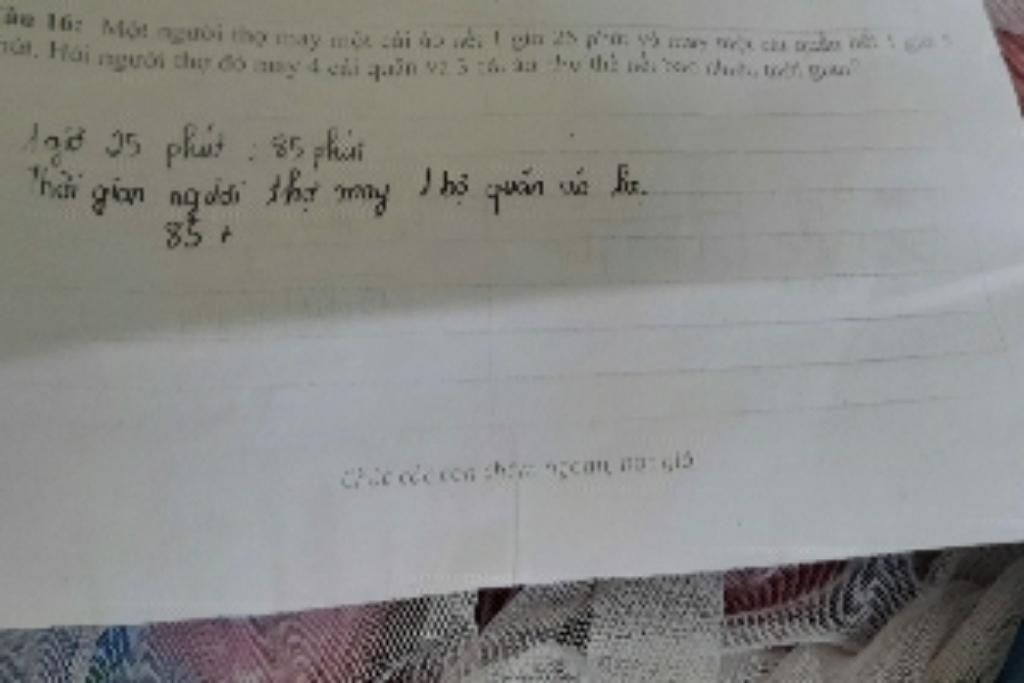 âu 16: Một người thợ may một cái áo hết 1 giờ 25 phút và may một cái quần hết 1 giờ 5
hút. Hỏi người thợ đó may 4 cái quần và 3 cái áo như thế hết bao nhiêu thời gian?
1 giờ 25 phút : 85 phút
Thời gian người thợ may 1 bộ quần và
85 +
Chúc các con chăm ngoan, học giỏi